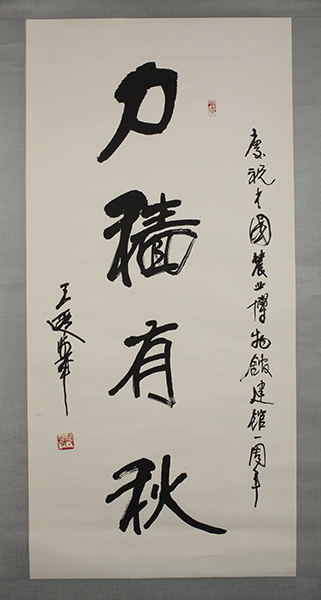 慶祝中國農业博物館建館一周年
力穡有秋
王遐举